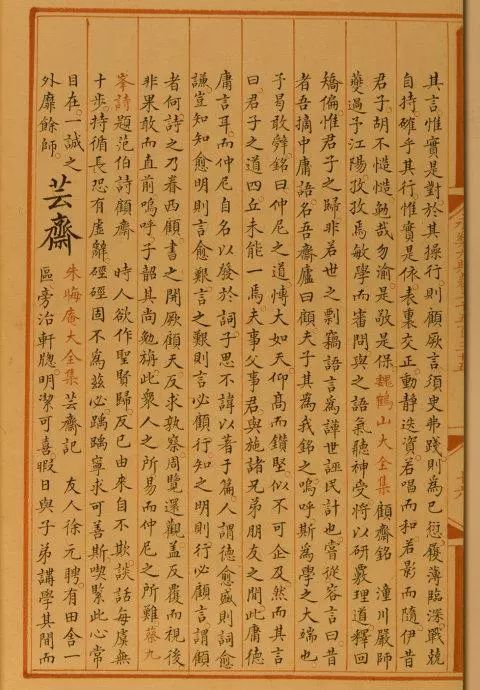 其言惟實是對於其操行則顧厥言須臾弗踐則為已愆履薄臨深戰兢
自持確乎其行惟實是依表裏交正動靜迭資若唱而和若影而隨伊昔
君子胡不慥慥勉哉勿渝是敬是保魏鶴山大全集 顧齋銘 潼川嚴師
夔過予江陽孜孜焉敏學而審問與之語氣聽神受將以研覈理道釋回
矯偏惟君子之歸非若世之剽竊語言為譁世誣民計也嘗從容言曰昔
者吾摘中庸語名吾齋廬曰顧夫子其為我銘之嗚呼斯為學之大端也
予曷敢辤銘曰仲尼之道博大如天仰高而鑽堅似不可企及然而其言
曰君子之道四丘未能一焉夫事父事君與施諸兄弟朋友之間此庸德
庸言耳而仲尼自名以發於詞子思不諱以著于篇人謂德愈盛則詞愈
謙豈知知愈明則言愈艱言之艱則言必顧行知之明則行必顧言謂顧
者何詩之乃眷西顧書之開厥顧天反求敦察周覽還觀蓋反覆而視後
非果敢而直前嗚呼子韶其尚勉旃此衆人之所易而仲尼之所難蔡九
峯詩 題范伯詩顧齋 時人欲作聖賢歸反已由來自不欺談話每虞無
十步持循長恐有虛辭硜硜固不為兹必踽踽寧求可善斯喫緊此心常
目在一誠之外靡餘師 芸齋 朱晦庵大全集 芸齋記 友人徐元聘有田舍一
區旁治軒牕明潔可喜暇日與子弟講學其間而